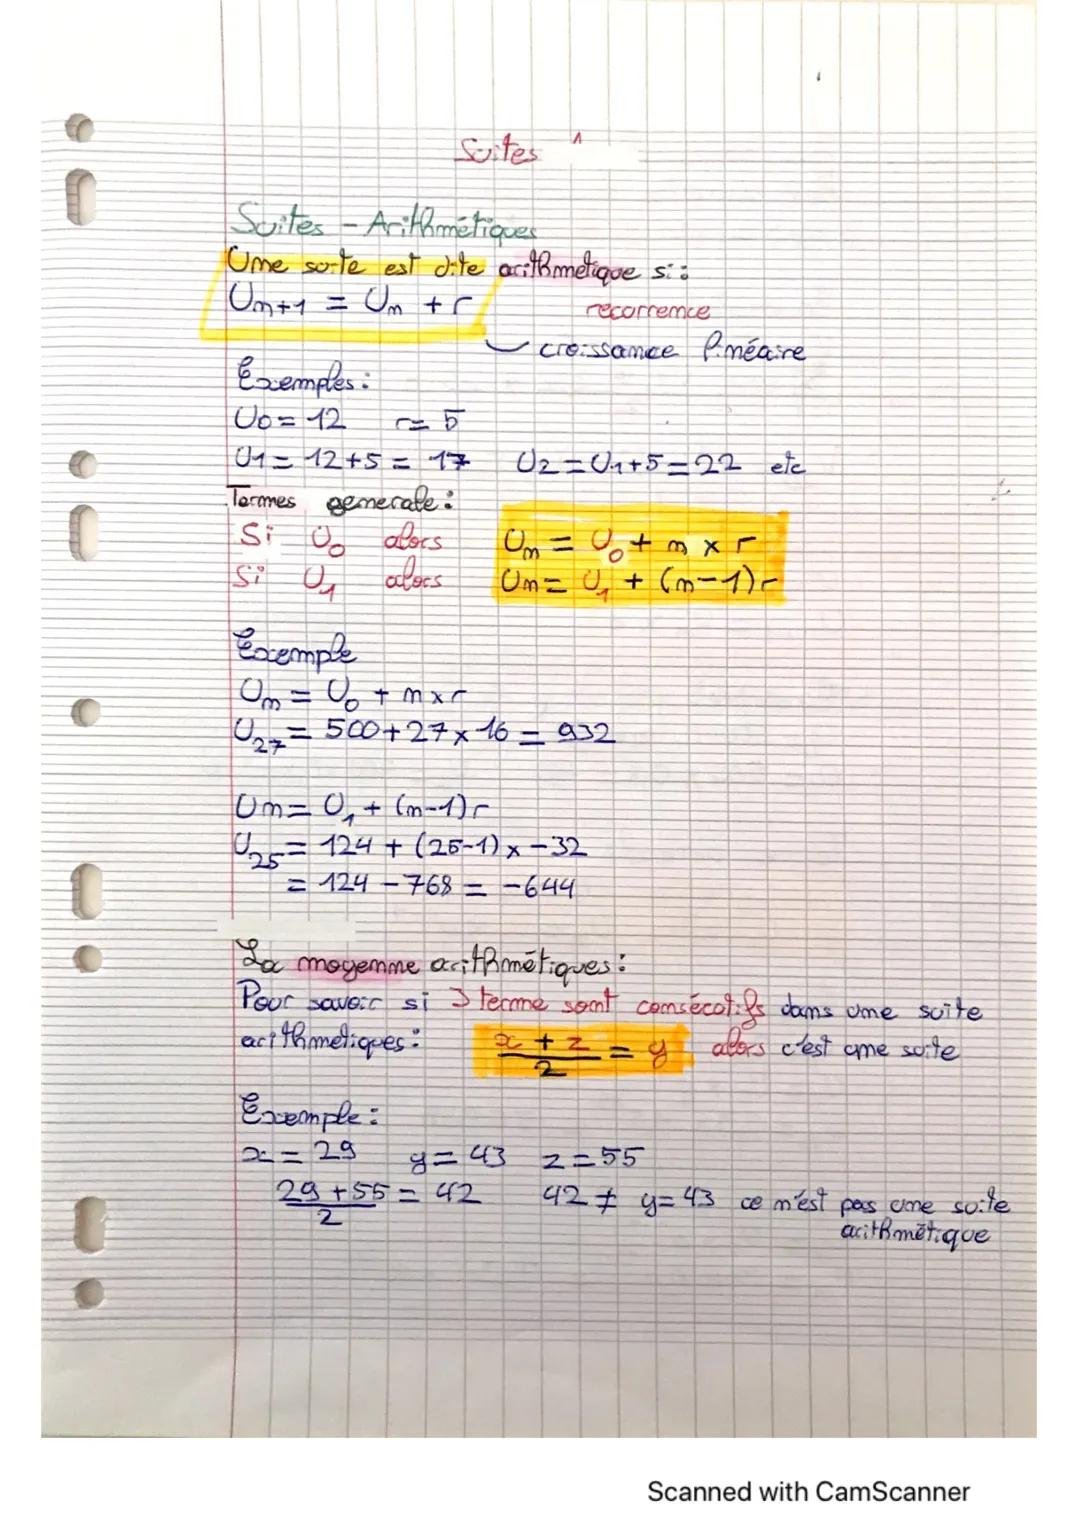 Suites 1
Suites - Arithmétiques
Une suite est dite arithmetique si :
Un+1 = Un + r
recurrence
croissance linéaire
Exemples :
U0 = 12 r = 5
U1 = 12+5 = 17 U2 = U1+5 = 22 etc
Termes generale :
Si U0 alors Un = U0 + n x r
Si U1 alors Un = U1 + (n-1)r
Exemple
Un = U0 + n x r
U27 = 500 + 27 x 16 = 932
Un = U1 + (n-1)r
U25 = 124 + (25-1) x -32
= 124 - 768 = -644
La moyenne arithmétiques :
Pour savoir si 3 terme sont consécutifs dans une suite
arithmetiques : x + z / 2 = y alors c'est une suite
Exemple :
x = 29 y = 43 z = 55
29 + 55 / 2 = 42 42 ≠ y = 43 ce n'est pas une suite
arithmétique
Scanned with CamScanner